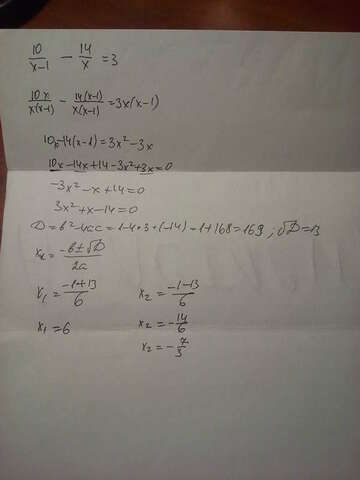 10/(x-1) - 14/x = 3
10x/(x(x-1)) - 14(x-1)/(x(x-1)) = 3x(x-1)
10x-14(x-1)=3x²-3x
10x-14x+14-3x²+3x=0
-3x²-x+14=0
3x²+x-14=0
D=b²-4ac=1-4·3·(-14)=1+168=169; √D=13
x₁=(-b±√D)/2a
x₁=(-1+13)/6
x₁=6
x₂=(-1-13)/6
x₂=-14/6
x₂=-7/3